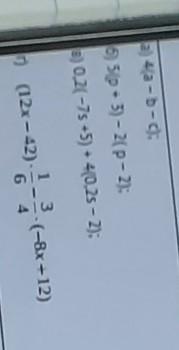 а) 4(a – b – c);
б) 5(p + 3) – 2( p – 2);
в) 0,2( –7s +5) + 4(0,2s – 2);
г) (12x – 42) · 1/6 – 3/4 · (–8x + 12)